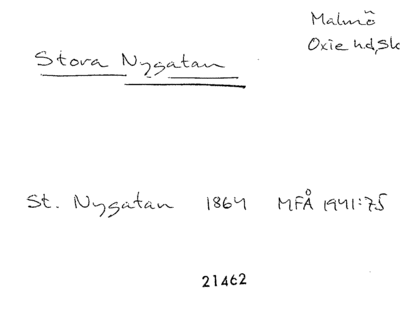 Malmö
Oxie hd, Sk
Stora Nygatan
St. Nygatan 1864 MFÅ 1941:75
21462